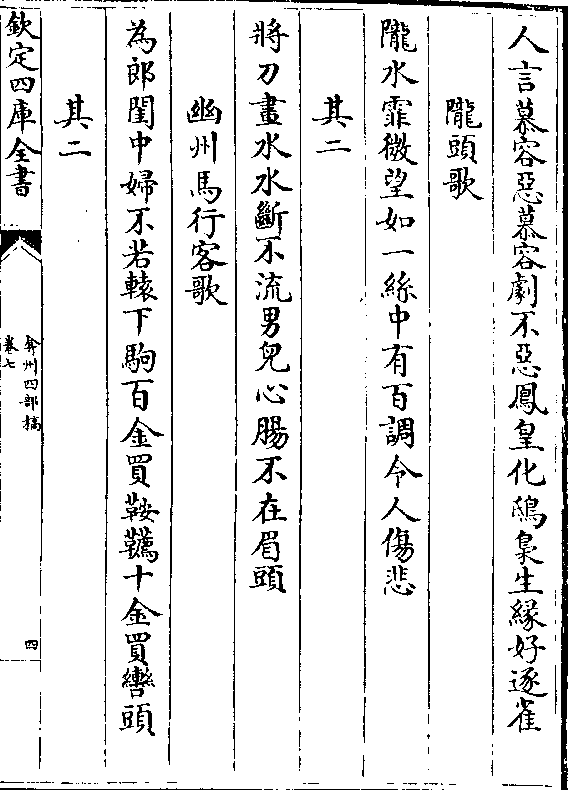 人言慕容惡慕容劇不惡鳳皇化鴟梟生緣好逐雀
隴頭歌
隴水霏微望如一絲中有百調令人傷悲
其二
將刀畫水水斷不流男兒心腸不在眉頭
幽州馬行客歌
為郎閨中婦不若轅下駒百金買鞍韉十金買轡頭
其二
欽定四庫全書
弇州四部稿
卷七
四